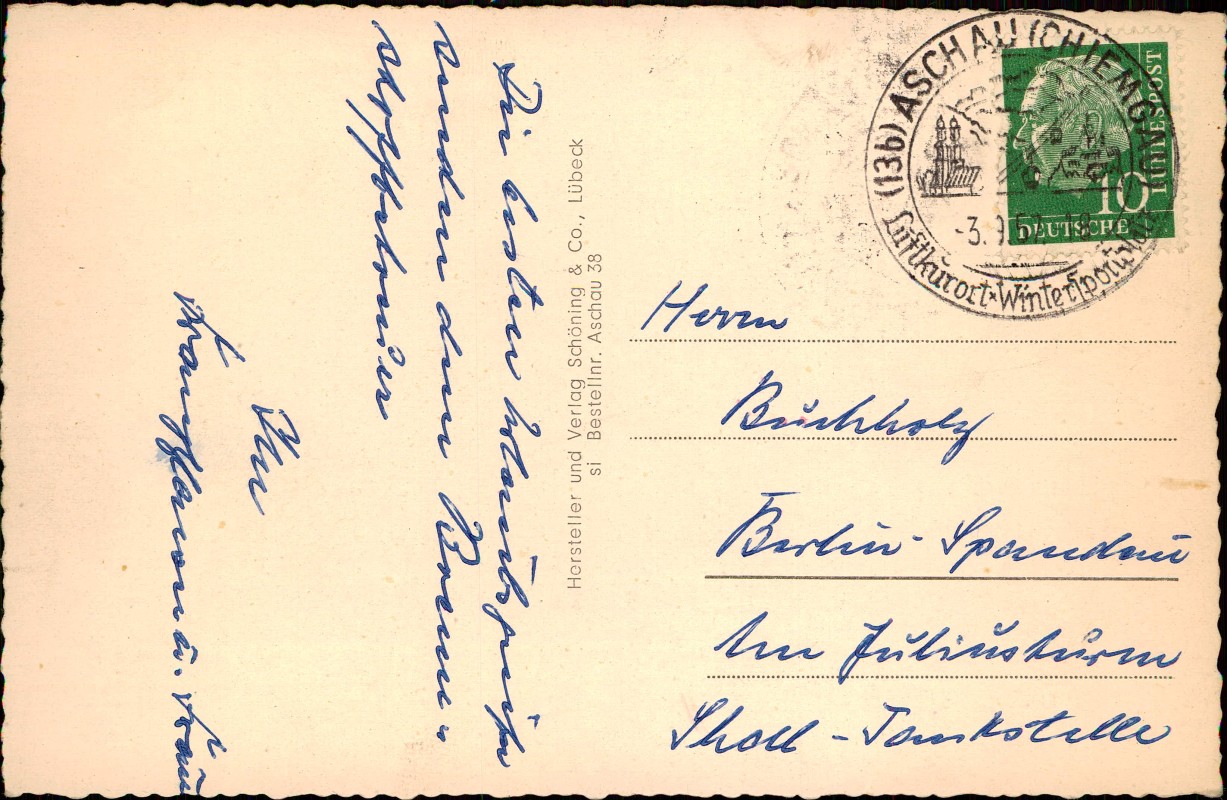 Die besten Urlaubsgrüße
senden dem Benzin-
schöpfer
Ihr
u. Frau
Hersteller und Verlag Schöning & Co., Lübeck
si Bestellnr. Aschau 38
(13b) ASCHAU (CHIEMGAU)
-3. 9. 57. 18
Luftkurort · Wintersportplatz
DEUTSCHE
BUNDESPOST
10
Herrn
Buchholz
Berlin-Spandau
Am Juliusturm
Shell-Tankstelle